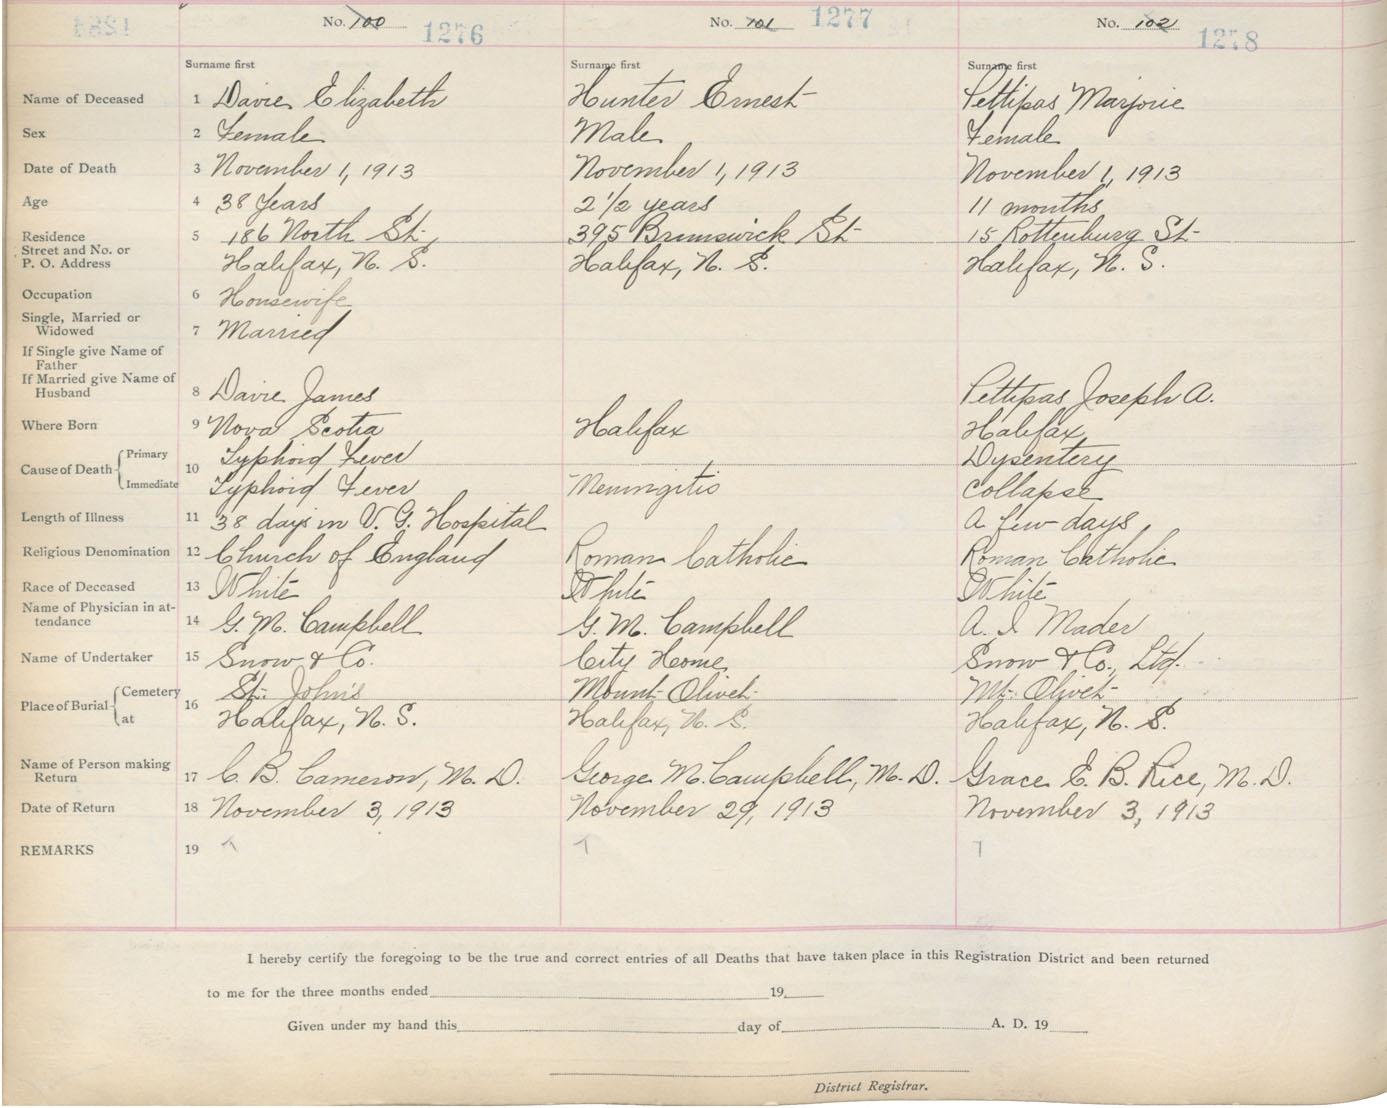 No. 100 1276 No. 101 1277 No. 102 1278
Surname first Surname first Surname first
Name of Deceased 1 Davie Elizabeth Hunter Ernest Pettipas Marjorie
Sex 2 Female Male Female
Date of Death 3 November 1, 1913 November 1, 1913 November 1, 1913
Age 4 38 Years 2 1/2 years 11 months
Residence 5 186 North St. 395 Brunswick St- 15 Rottenburg St-
Street and No. or
P. O. Address Halifax, N. S. Halifax, N. S. Halifax, N. S.
Occupation 6 Housewife
Single, Married or
Widowed 7 Married
If Single give Name of
Father
If Married give Name of
Husband 8 Davie James Pettipas Joseph A.
Where Born 9 Nova Scotia Halifax Halifax
Cause of Death Primary 10 Typhoid Fever Dysentery
Immediate Typhoid Fever Meningitis Collapse
Length of Illness 11 38 days in V. G. Hospital A few days
Religious Denomination 12 Church of England Roman Catholic Roman Catholic
Race of Deceased 13 White White White
Name of Physician in at-
tendance 14 G. M. Campbell G. M. Campbell A. I. Mader
Name of Undertaker 15 Snow & Co. City Home Snow & Co., Ltd.
Place of Burial Cemetery 16 St. John's Mount Olivet- Mt. Olivet-
at Halifax, N. S. Halifax, N. S. Halifax, N. S.
Name of Person making
Return 17 C. B. Cameron, M. D. George M. Campbell, M. D. Grace E. B. Rice, M. D.
Date of Return 18 November 3, 1913 November 29, 1913 November 3, 1913
REMARKS 19
I hereby certify the foregoing to be the true and correct entries of all Deaths that have taken place in this Registration District and been returned
to me for the three months ended 19
Given under my hand this day of A. D. 19
District Registrar.